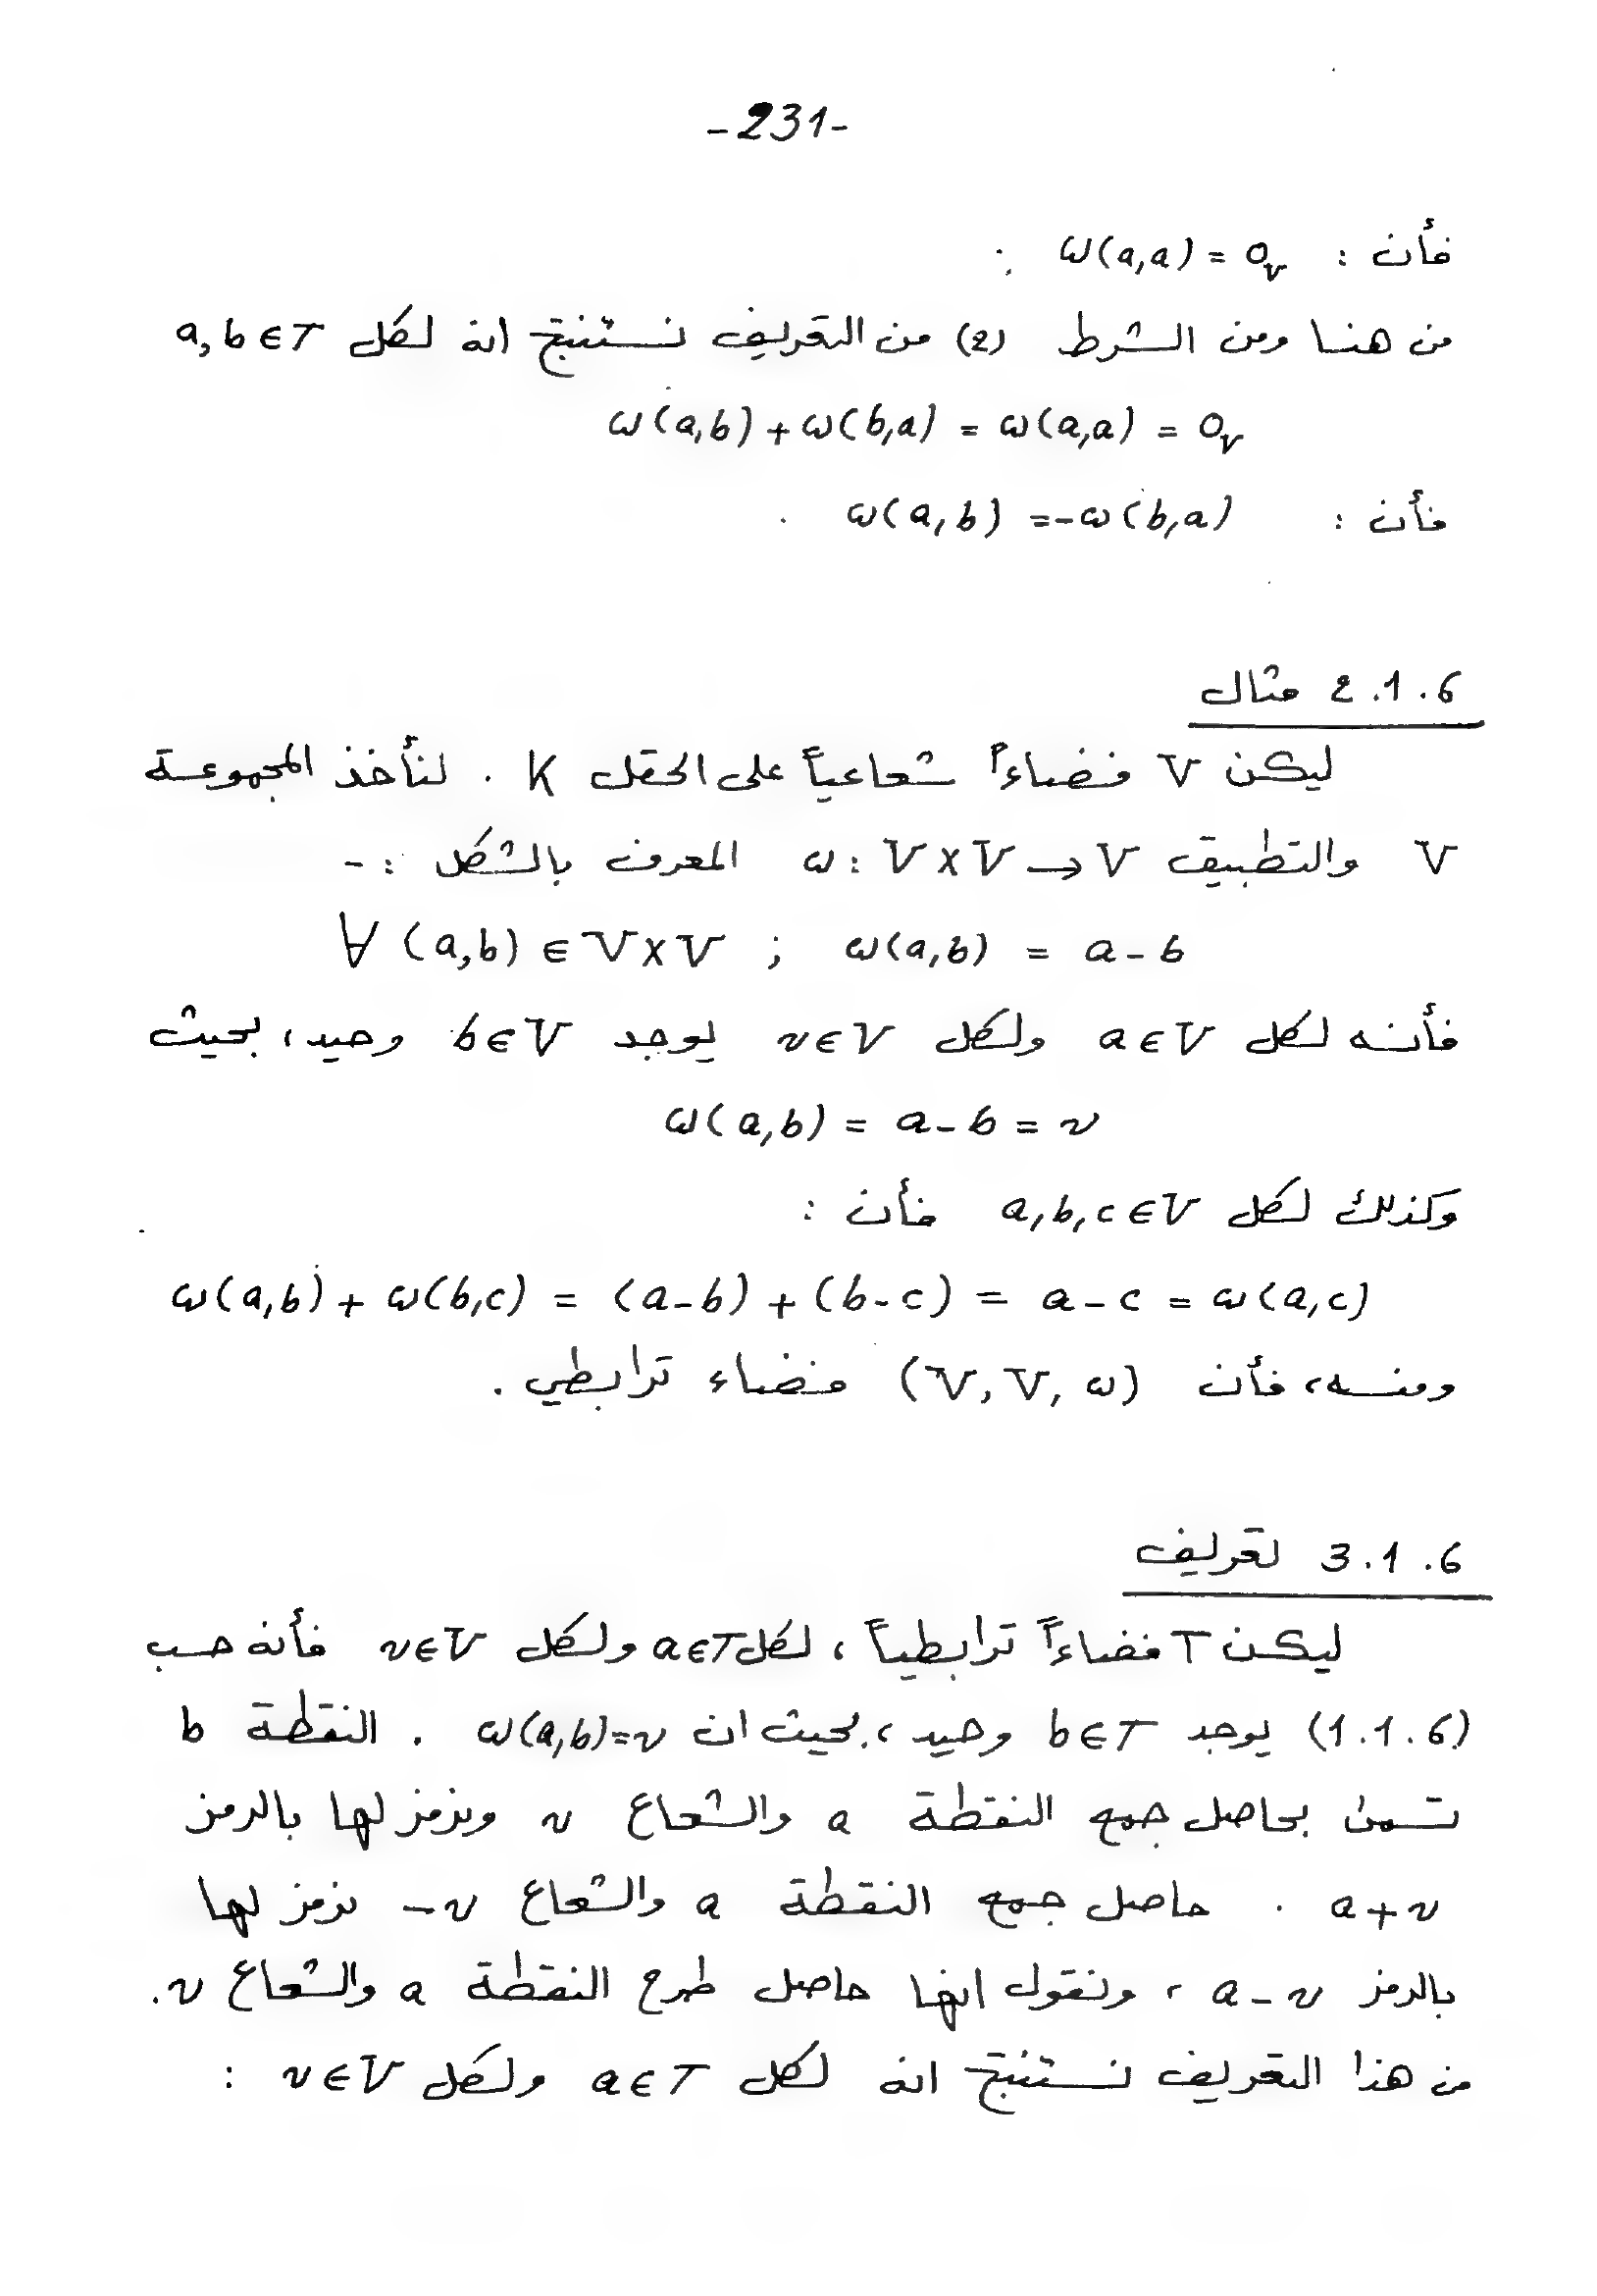 -231-
فأن : ω(a,a) = 0_V .
من هنا ومن الشرط (2) من التعريف نستنتج انه لكل a,b ∈ T
ω(a,b) + ω(b,a) = ω(a,a) = 0_V
فأن : ω(a,b) = -ω(b,a) .
2.1.6 مثال
ليكن V فضاءاً شعاعياً على الحقل K . لنأخذ المجموعة
V والتطبيق ω : V x V → V المعرف بالشكل :-
∀ (a,b) ∈ V x V ; ω(a,b) = a - b
فأنه لكل a ∈ V ولكل v ∈ V يوجد b ∈ V وحيد، بحيث
ω(a,b) = a - b = v
وكذلك لكل a,b,c ∈ V فأن :
ω(a,b) + ω(b,c) = (a-b) + (b-c) = a - c = ω(a,c)
ومنه، فأن (V, V, ω) فضاء ترابطي .
3.1.6 تعريف
ليكن T فضاءاً ترابطياً ، لكل a ∈ T ولكل v ∈ V فأنه حسب
(1.1.6) يوجد b ∈ T وحيد، بحيث ان ω(a,b)=v . النقطة b
تسمى بحاصل جمع النقطة a والشعاع v ونرمز لها بالرمز
a + v . حاصل جمع النقطة a والشعاع -v نرمز لها
بالرمز a - v ، ونقول انها حاصل طرح النقطة a والشعاع v .
من هذا التعريف نستنتج انه لكل a ∈ T ولكل v ∈ V :